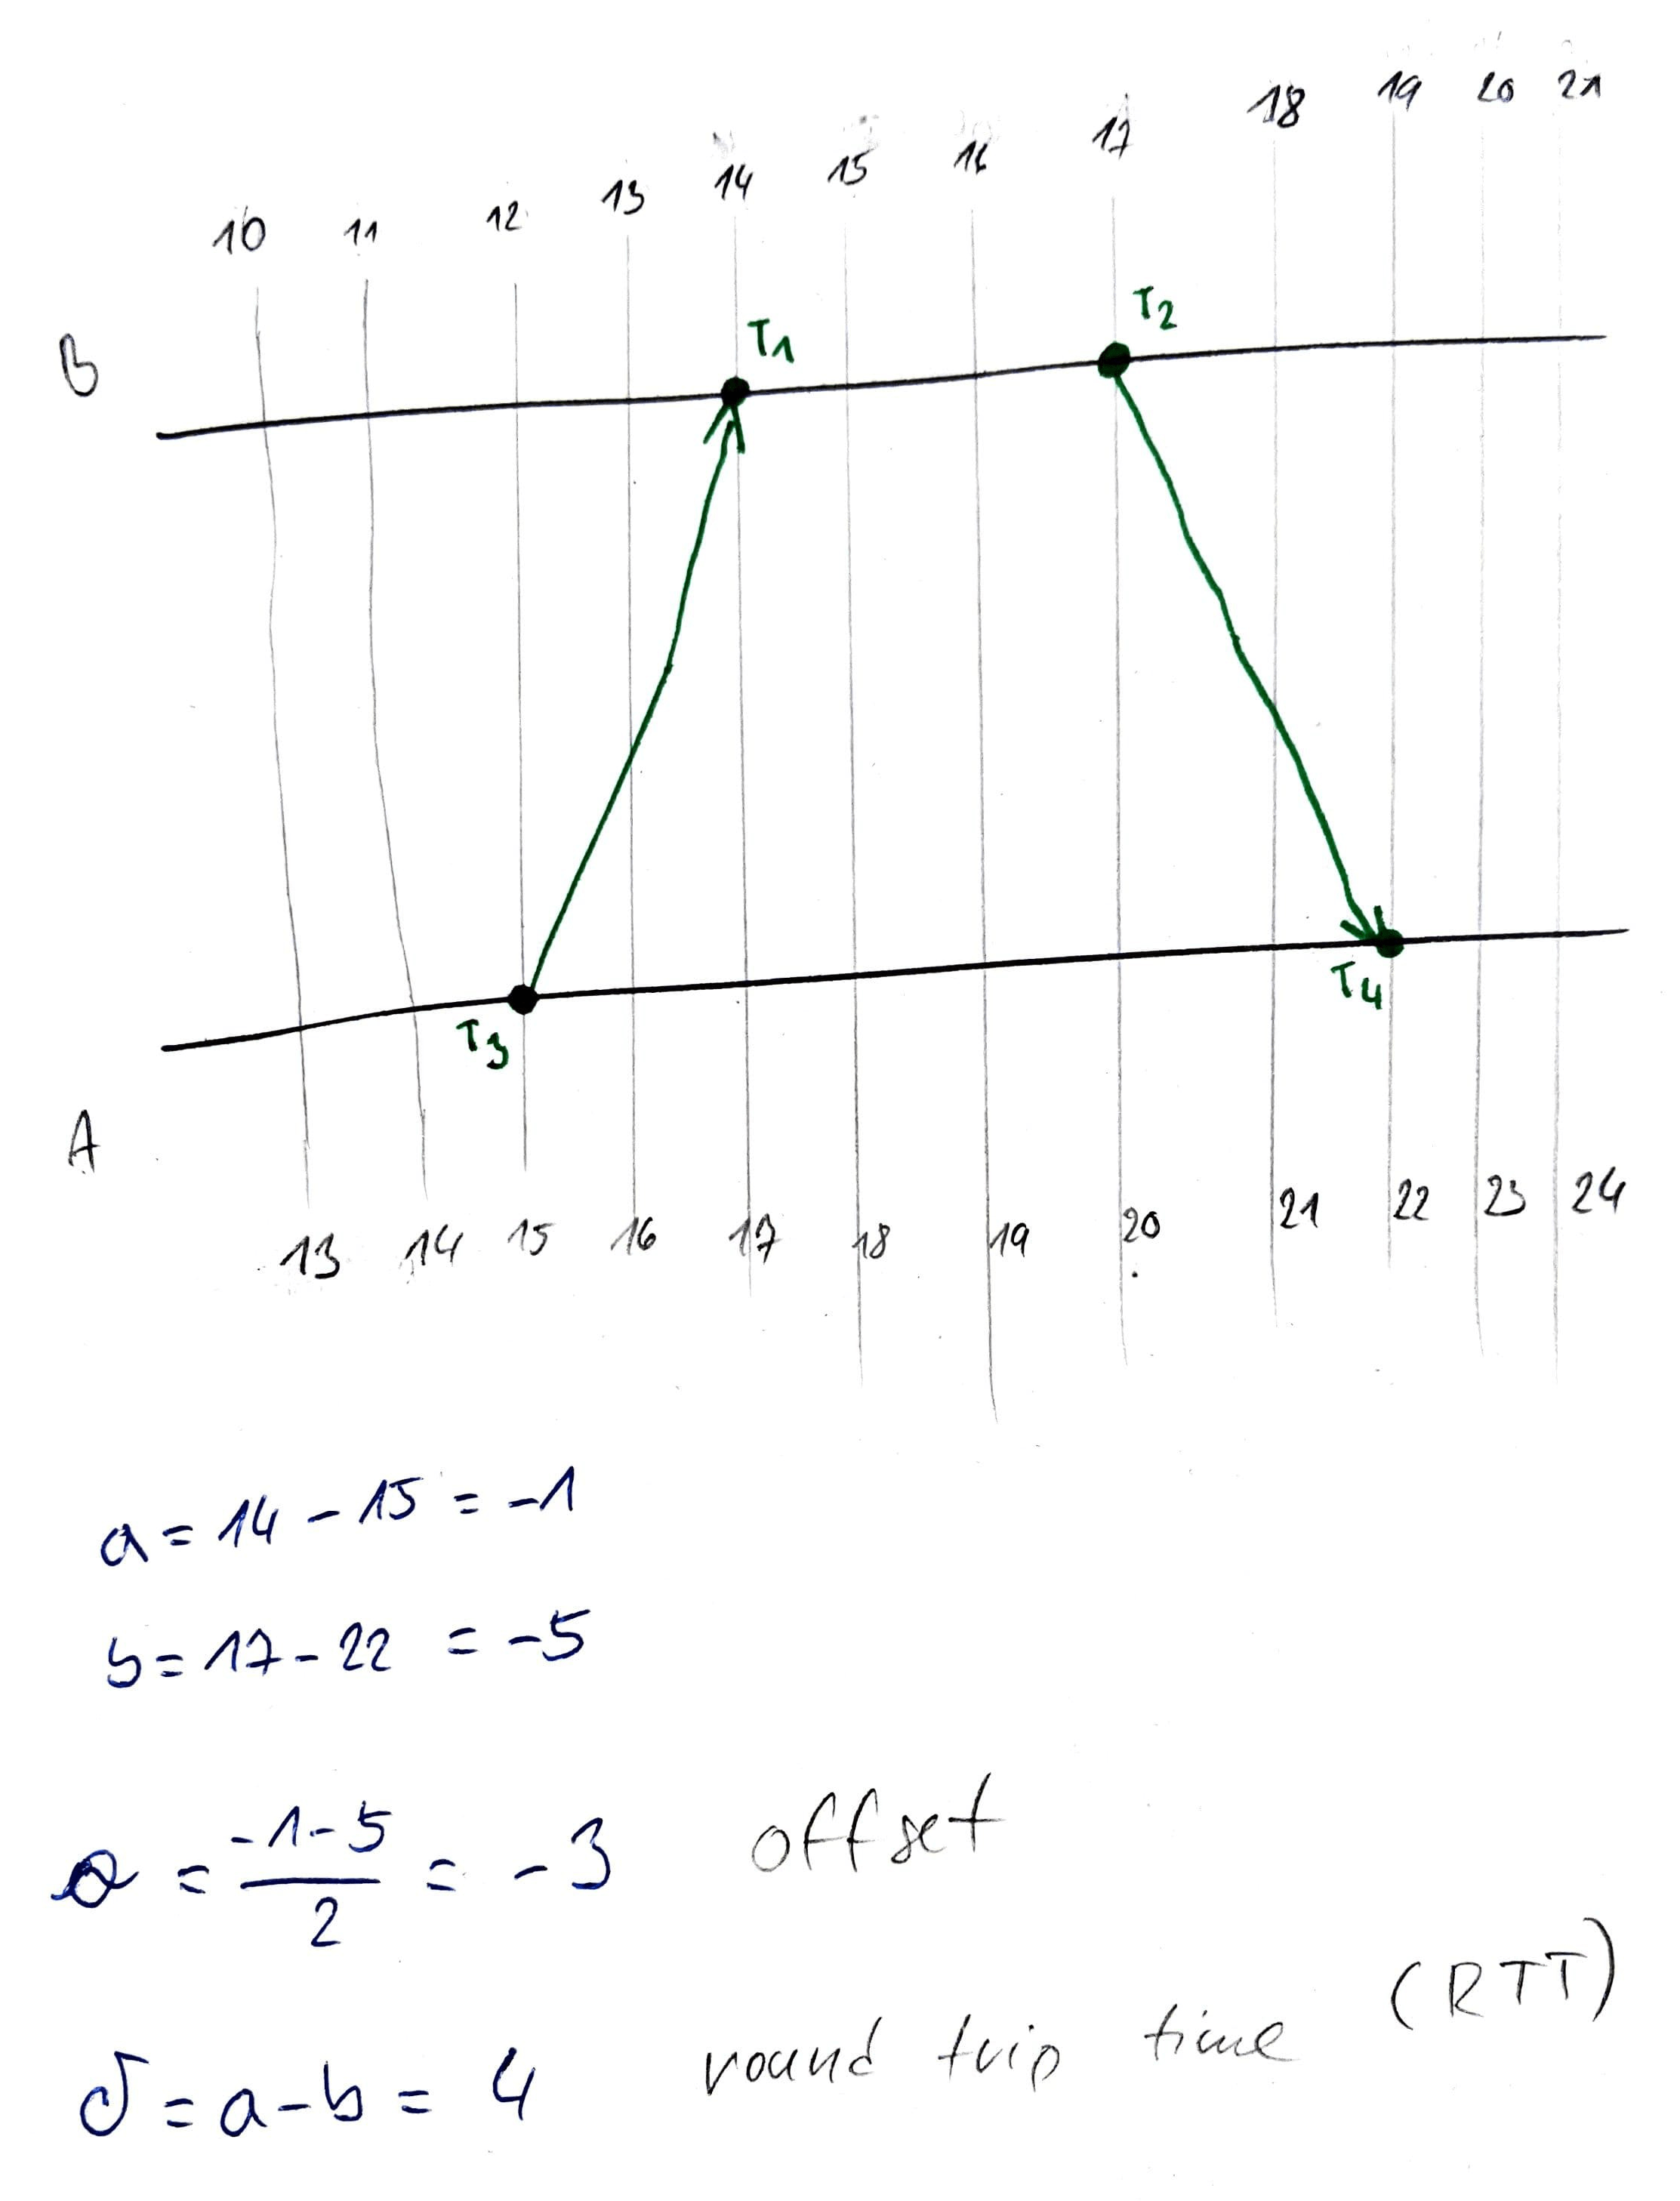 10 11 12 13 14 15 16 17 18 19 20 21
T1 T2
B
T3 T4
A
13 14 15 16 17 18 19 20 21 22 23 24
a = 14 - 15 = -1
b = 17 - 22 = -5
a = -1-5 / 2 = -3 offset
δ = a - b = 4 round trip time (RTT)